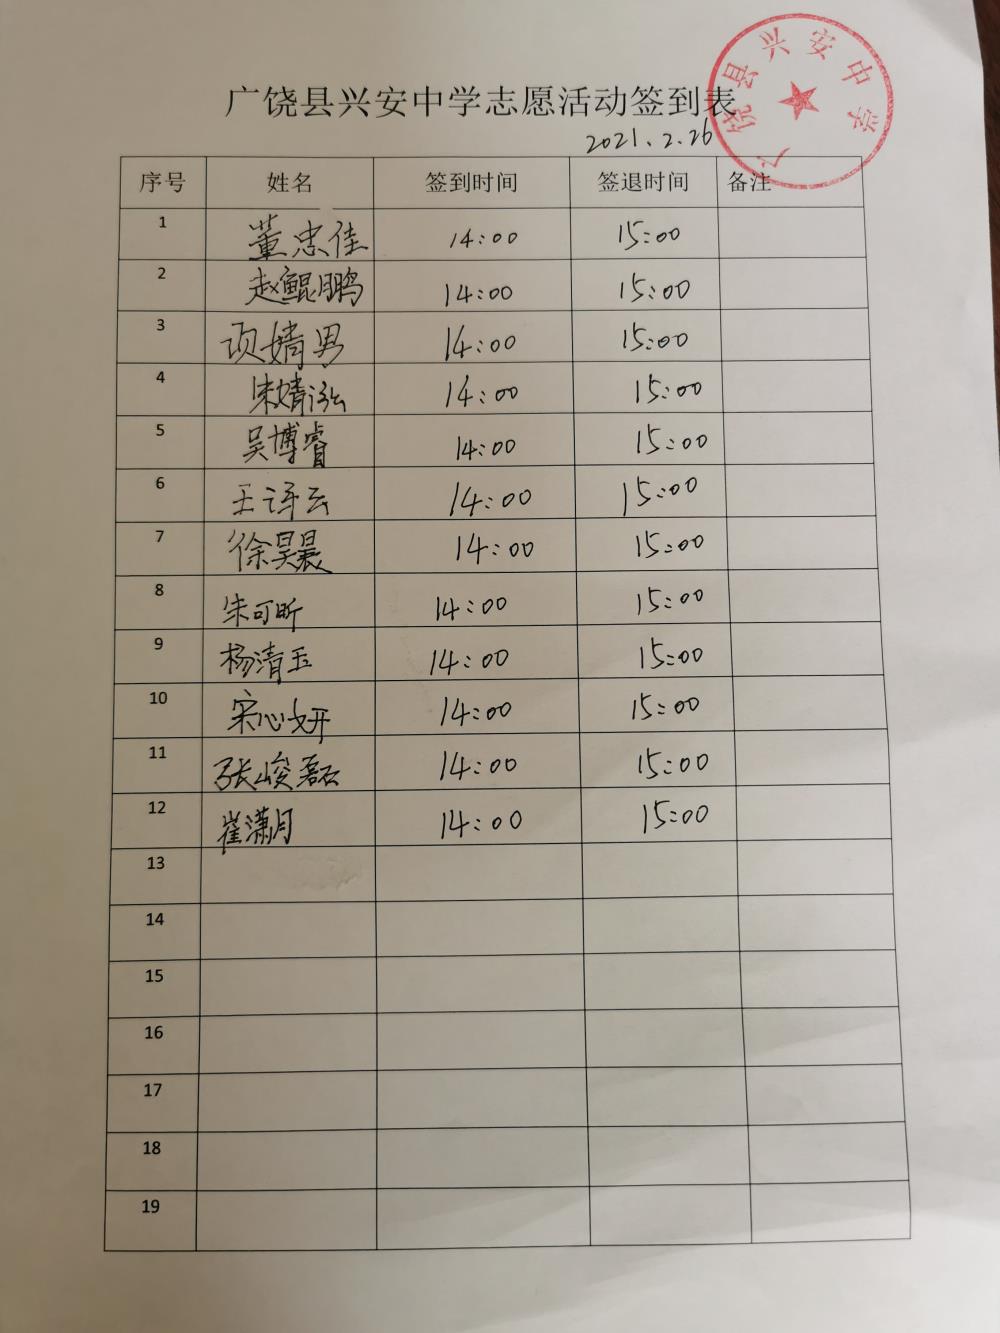 广饶县兴安中学志愿活动签到表
广饶县兴安中学
2021.2.26
序号 姓名 签到时间 签退时间 备注
1 董忠佳 14:00 15:00
2 赵鲲鹏 14:00 15:00
3 项婧男 14:00 15:00
4 朱婧泓 14:00 15:00
5 吴博睿 14:00 15:00
6 王译云 14:00 15:00
7 徐昊晨 14:00 15:00
8 朱可昕 14:00 15:00
9 杨清玉 14:00 15:00
10 宋心妍 14:00 15:00
11 张峻磊 14:00 15:00
12 崔潇月 14:00 15:00
13
14
15
16
17
18
19